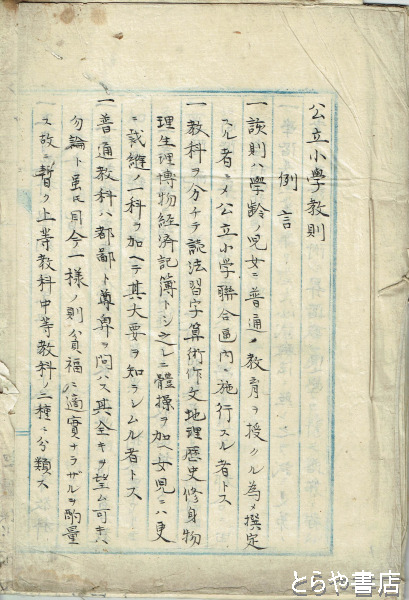 公立小學教則
例言
一該則ハ學齡ノ児女ニ普通ノ教育ヲ授クル為メ撰定
スル者ニメ公立小學聯合區内ニ施行スル者トス
一教科ヲ分チテ讀法習字算術作文地理歴史修身物
理生理博物経済記簿トシ之レニ體操ヲ加ヘ女児ニハ更
ニ裁縫ノ一科ヲ加ヘテ其大要ヲ知ラシムル者トス
一普通教科ハ都鄙ト尊卑ヲ問ハス其全キヲ望ム可キハ
勿論ト雖モ目今一様ノ則貧福ニ適實ナラザルヲ酌量
ス故ニ暫ク上等教科中等教科ノ二種ニ分類ス
とらや書店